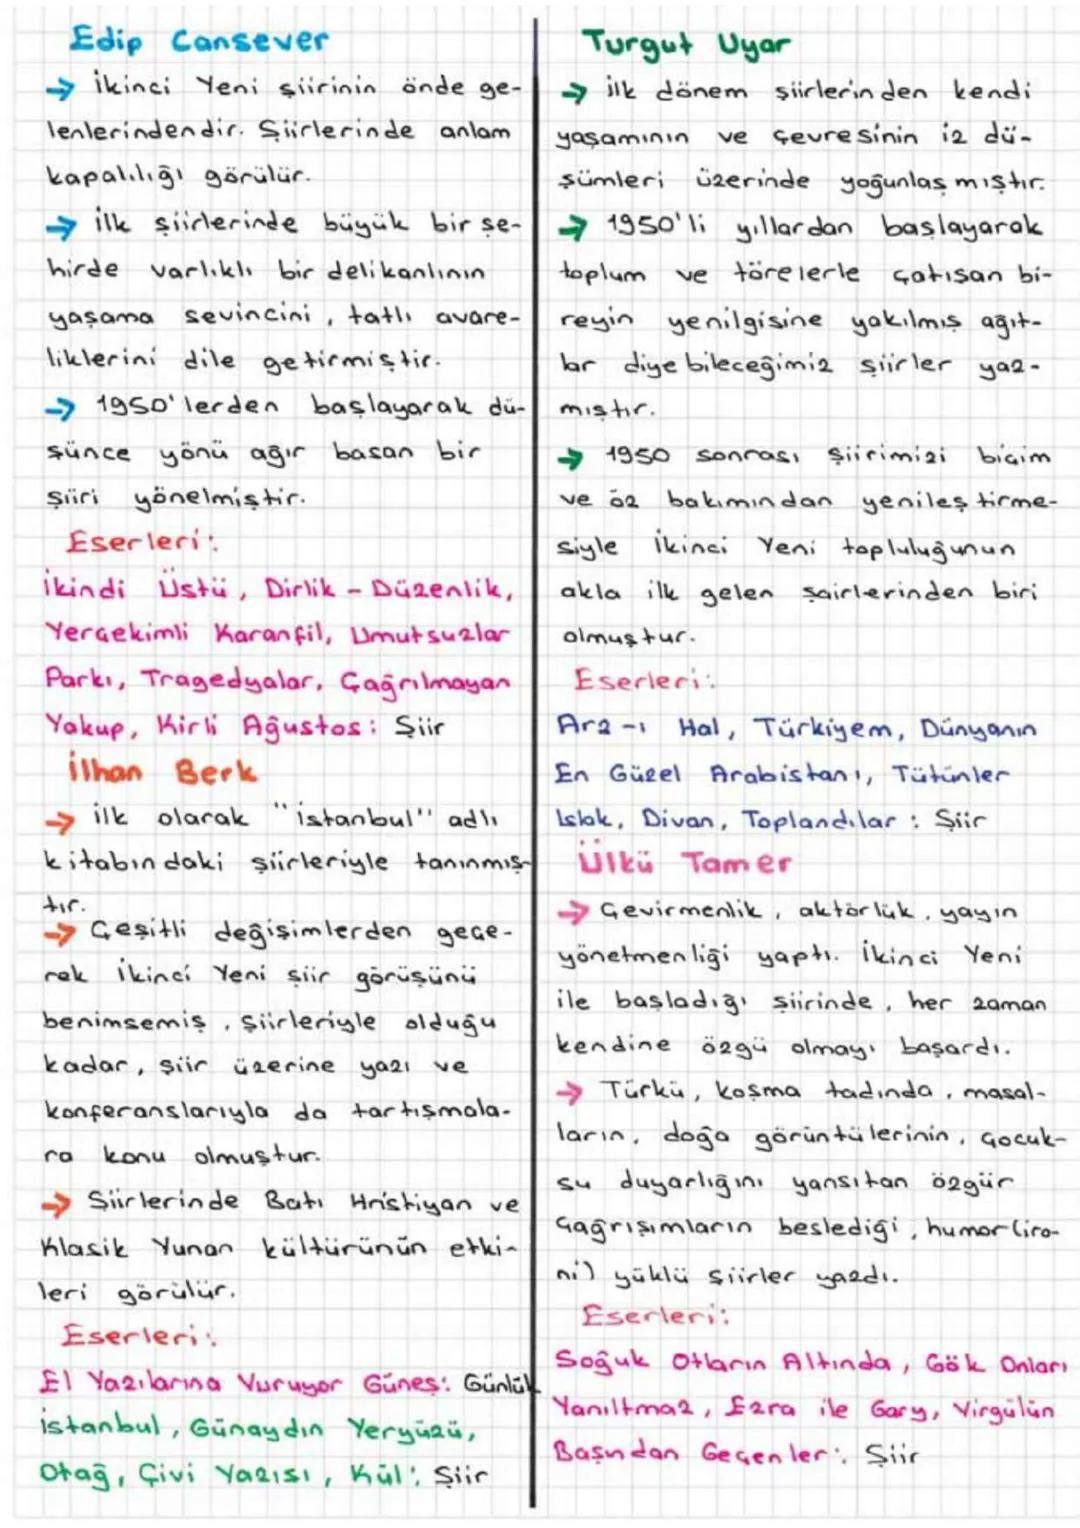 Edip Cansever
→ İkinci Yeni şiirinin önde ge-
lenlerindendir. Şiirlerinde anlam
kapalılığı görülür.
→ İlk şiirlerinde büyük bir şe-
hirde varlıklı bir delikanlının
yaşama sevincini, tatlı avare-
liklerini dile getirmiştir.
→ 1950'lerden başlayarak dü-
şünce yönü ağır basan bir
şiiri yönelmiştir.
Eserleri:
İkindi Üstü, Dirlik - Düzenlik,
Yerçekimli Karanfil, Umutsuzlar
Parkı, Tragedyalar, Çağrılmayan
Yakup, Kirli Ağustos: Şiir
İlhan Berk
→ İlk olarak "İstanbul" adlı
kitabındaki şiirleriyle tanınmış-
tır.
→ Çeşitli değişimlerden geçe-
rek İkinci Yeni şiir görüşünü
benimsemiş, şiirleriyle olduğu
kadar, şiir üzerine yazı ve
konferanslarıyla da tartışmala-
ra konu olmuştur.
→ Şiirlerinde Batı Hristiyan ve
Klasik Yunan kültürünün etki-
leri görülür.
Eserleri:
El Yazılarına Vuruyor Güneş: Günlük
İstanbul, Günaydın Yeryüzü,
Otağ, Çivi Yazısı, Kül: Şiir
Turgut Uyar
→ İlk dönem şiirlerinden kendi
yaşamının ve çevresinin iz dü-
şümleri üzerinde yoğunlaşmıştır.
→ 1950'li yıllardan başlayarak
toplum ve törelerle çatışan bi-
reyin yenilgisine yakılmış ağıt-
lar diyebileceğimiz şiirler yaz-
mıştır.
→ 1950 sonrası şiirimizi biçim
ve öz bakımından yenileştirme-
siyle İkinci Yeni topluluğunun
akla ilk gelen şairlerinden biri
olmuştur.
Eserleri:
Arz-ı Hal, Türkiyem, Dünyanın
En Güzel Arabistanı, Tütünler
Islak, Divan, Toplandılar: Şiir
Ülkü Tamer
→ Çevirmenlik, aktörlük, yayın
yönetmenliği yaptı. İkinci Yeni
ile başladığı şiirinde, her zaman
kendine özgü olmayı başardı.
→ Türkü, koşma tadında, masal-
ların, doğa görüntülerinin, çocuk-
su duyarlığını yansıtan özgür
çağrışımların beslediği, humor (iro-
ni) yüklü şiirler yazdı.
Eserleri:
Soğuk Otların Altında, Gök Onları
Yanıltmaz, Ezra ile Gary, Virgülün
Başından Geçenler: Şiir